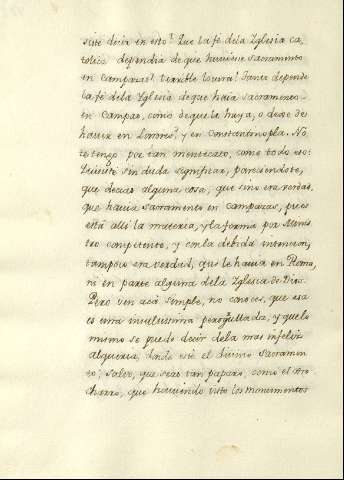 sise decir en esto? Que la fé dela Yglesia ca,
tolica dependia de que huviese sacramento
en Campazas? terrible locura! Tanto depende
la fé dela Yglesia de que haia sacramento
en Campazas, como de que le haya, o dexe de
haver en Londres, y en Constantinopla. No
te tengo por tan mentecato, como todo eso:
Quisiste sin duda significar, pareciendote,
que decias alguna cosa, que si no era verdad,
que havia sacramento en Campazas, pues
está alli la materia, y la forma por Minis
tro competente, y con la debida intencion,
tampoco era verdad, que le havia en Roma,
ni en parte alguna dela Yglesia de Dios.
Pero ven acá simple, no conoces, que esa
es una insulsissima perogrullada, y que lo
mismo se puede decir dela mas infeliz
alqueria, donde esté el divino Sacramen
to; salvo, que seas tan paparo, como el otro
charro, que haviendo visto los monumentos